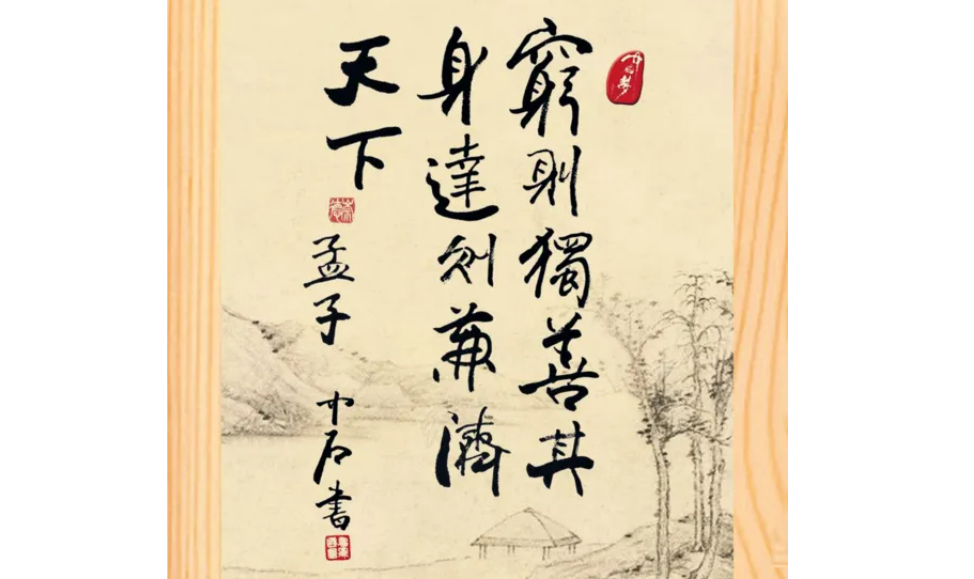 窮則獨善其
身達則兼濟
天下
孟子 中石書